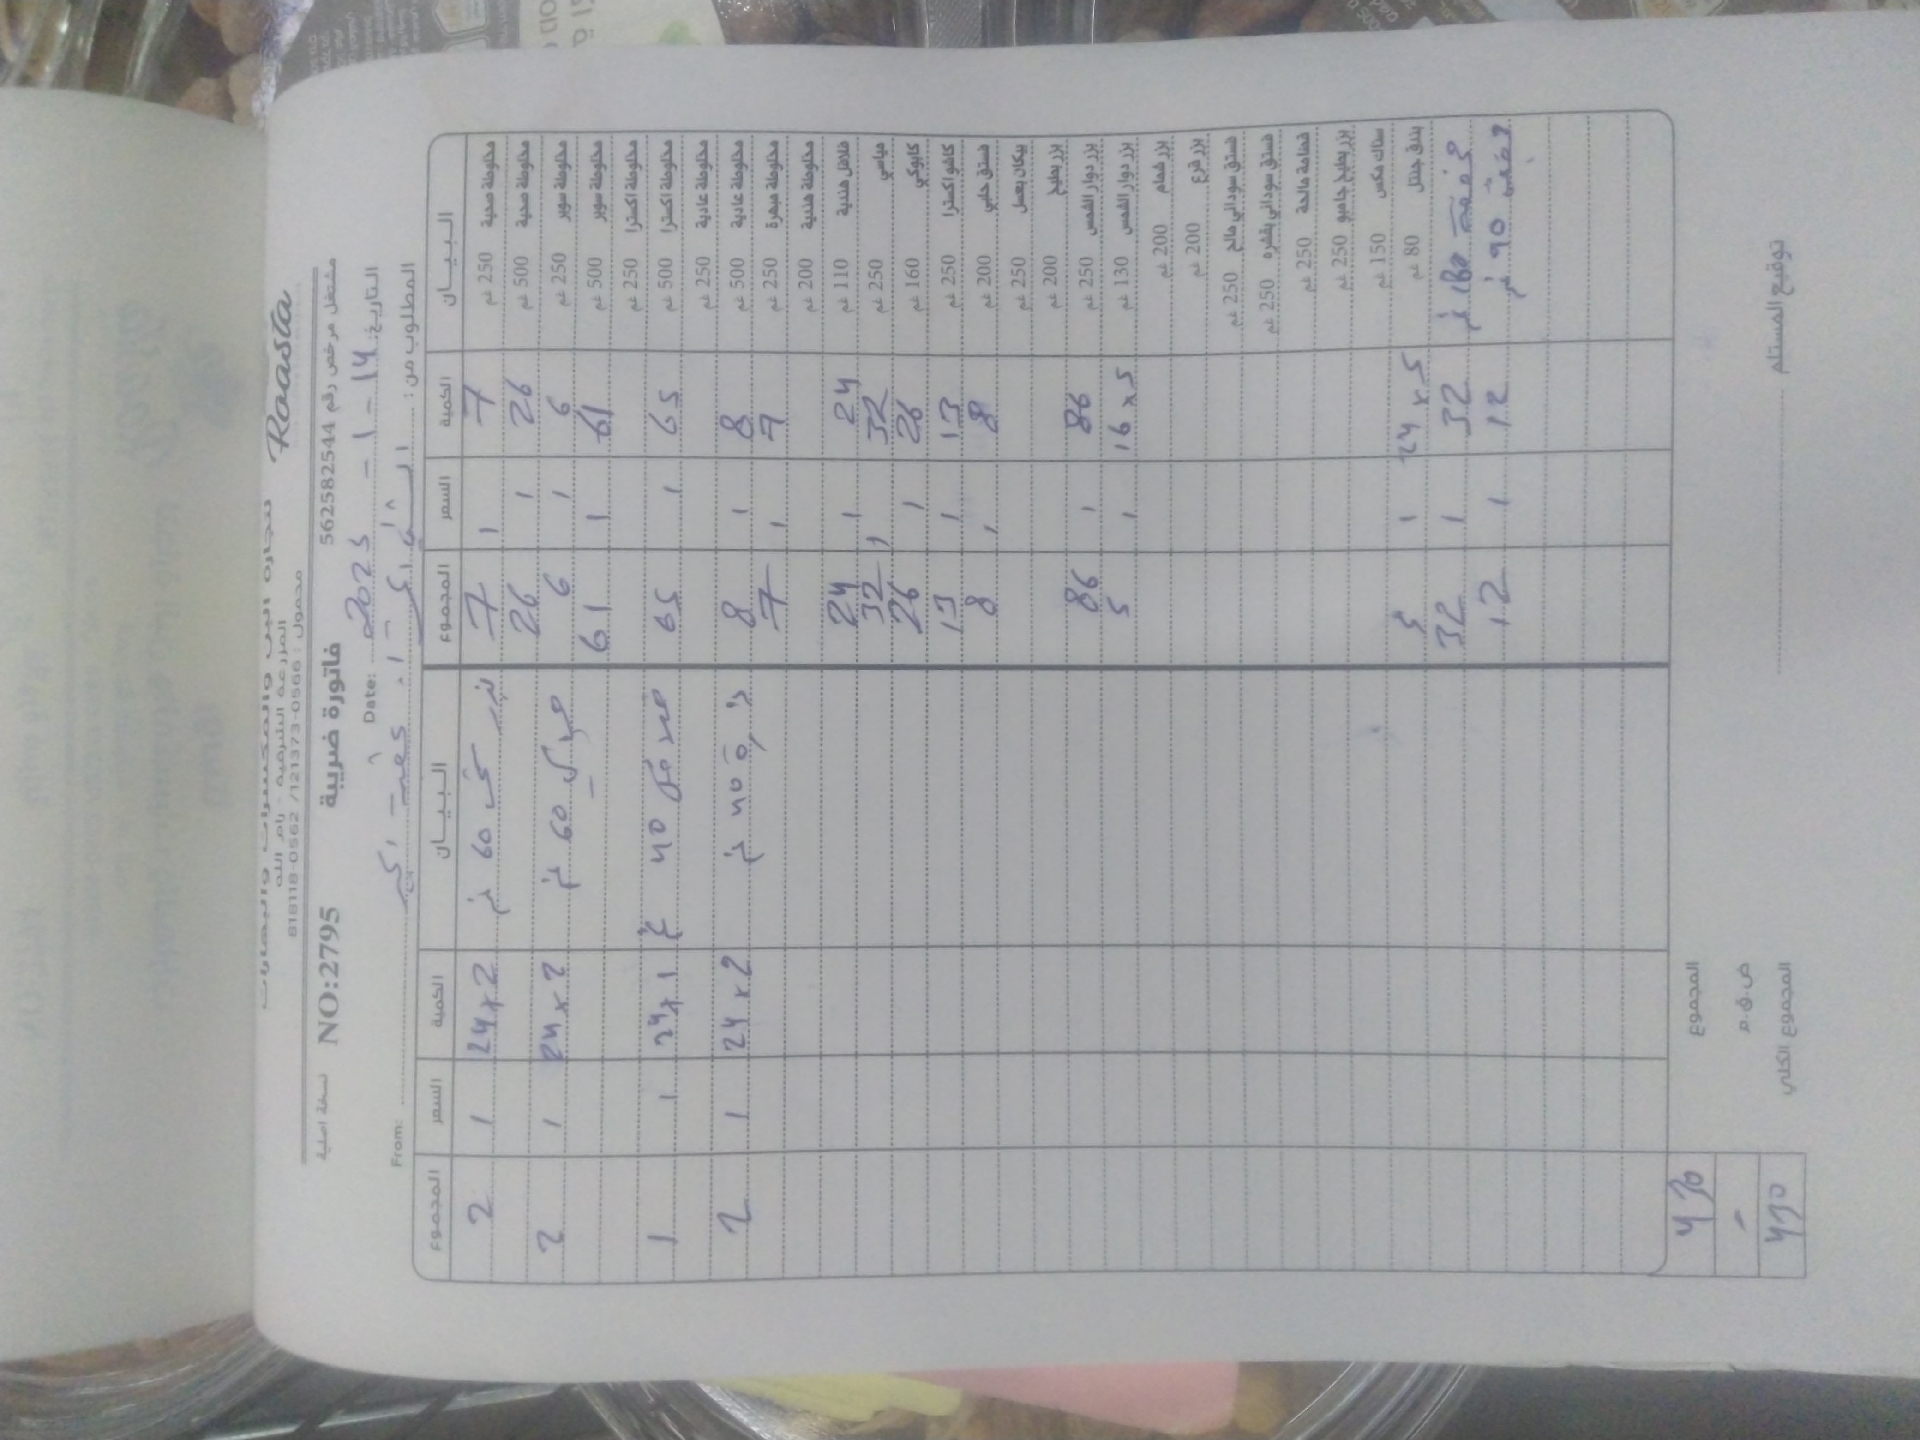 Roasta
لتجارة البن والمكسرات والبهارات
المزرعة الشرقية - رام الله
محمول : 0566-121373 / 0562-818118
مشتغل مرخص رقم 562582544
فاتورة ضريبية
NO:2795
نسخة اصلية
التاريخ: 14 - 1 - 2025 Date:
المطلوب من: From:
البيان الكمية السعر المجموع البيان الكمية السعر المجموع
مخلوطة صحية 250 غم 7 1 7 60 غم 24 x 2 1 2
مخلوطة صحية 500 غم 26 1 26
مخلوطة سوبر 250 غم 6 1 6 60 غم 24 x 2 1 2
مخلوطة سوبر 500 غم 61 1 61
مخلوطة اكسترا 250 غم
مخلوطة اكسترا 500 غم 65 1 65 40 غم 24 x 1 1 1
مخلوطة عادية 250 غم
مخلوطة عادية 500 غم 8 1 8 40 غم 24 x 2 1 2
مخلوطة مبهرة 250 غم 7 1 7
مخلوطة هندية 200 غم
فلافل هندية 110 غم 24 1 24
مياسي 250 غم 32 1 32
كابوكي 160 غم 26 1 26
كاشو اكسترا 250 غم 13 1 13
فستق حلبي 200 غم 8 1 8
بيكان بعسل 250 غم
بزر بطيخ 200 غم
بزر دوار الشمس 250 غم 86 1 86
بزر دوار الشمس 130 غم 16 x 5 1 5
بزر شمام 200 غم
بزر قرع 200 غم
فستق سوداني مالح 250 غم
فستق سوداني بقشره 250 غم
قضامة مالحة 250 غم
بزر بطيخ جامبو 250 غم
سناك مكس 150 غم
بندق جنتل 80 غم 24 x 5 1 5
180 غم 32 1 32
90 غم 12 1 12
المجموع 430
ض.ق.م -
المجموع الكلي 430
توقيع المستلم